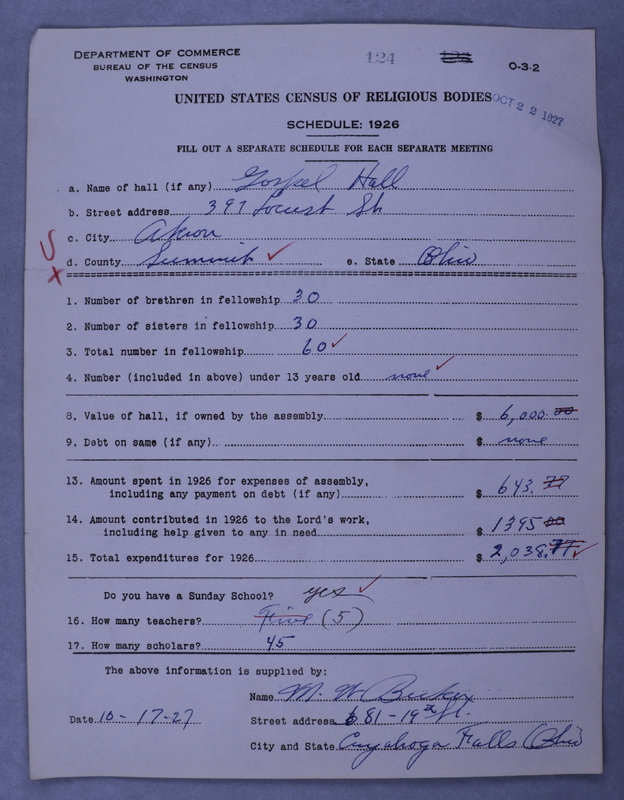 DEPARTMENT OF COMMERCE
BUREAU OF THE CENSUS
WASHINGTON
124
O-3-2
UNITED STATES CENSUS OF RELIGIOUS BODIES
OCT 22 1927
SCHEDULE: 1926
FILL OUT A SEPARATE SCHEDULE FOR EACH SEPARATE MEETING
a. Name of hall (if any) Gospel Hall
b. Street address 397 Locust St.
c. City Akron
d. County Summit ✓ e. State Ohio
1. Number of brethren in fellowship 30
2. Number of sisters in fellowship 30
3. Total number in fellowship 60 ✓
4. Number (included in above) under 13 years old none ✓
8. Value of hall, if owned by the assembly $ 6,000.00
9. Debt on same (if any) $ none
13. Amount spent in 1926 for expenses of assembly,
including any payment on debt (if any) $ 643.77
14. Amount contributed in 1926 to the Lord's work,
including help given to any in need $ 1395 00
15. Total expenditures for 1926 $ 2,038.77 ✓
Do you have a Sunday School? yes ✓
16. How many teachers? Five (5)
17. How many scholars? 45
The above information is supplied by:
Name M. W.
Date 10-17-27 Street address 681-19th St.
City and State Cuyahoga Falls (Ohio